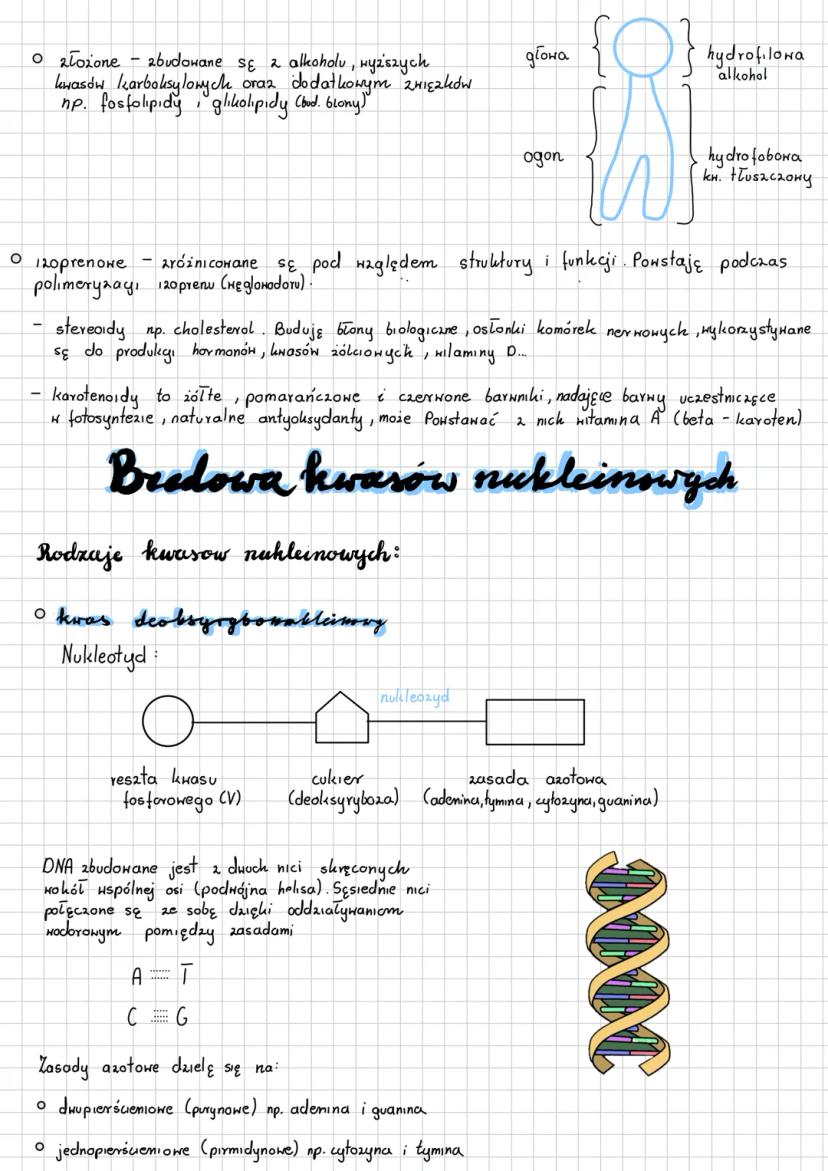 złożone - zbudowane są z alkoholu, wyższych
kwasów karboksylowych oraz dodatkowym związków
np. fosfolipidy i glikolipidy (bud. błony)
głowa
hydrofilowa
alkohol
ogon
hydrofobowa
kw. tłuszczowy
izoprenowe - zróżnicowane są pod względem struktury i funkcji. Powstają podczas
polimeryzacji izoprenu (węglowodoru).
- stereoidy np. cholesterol. Budują błony biologiczne, osłonki komórek nerwowych, wykorzystywane
są do produkcji hormonów, kwasów żółciowych, witaminy D...
- karotenoidy to żółte, pomarańczowe i czerwone barwniki, nadające barwy uczestniczące
w fotosyntezie, naturalne antyoksydanty, może Powstawać z nich witamina A (beta - karoten)
Budowa kwasów nukleinowych
Rodzaje kwasow nukleinowych:
kwas deoksyrybonukleinowy
Nukleotyd:
nukleozyd
reszta kwasu
fosforowego (V)
cukier
(deoksyryboza)
zasada azotowa
(adenina, tymina, cytozyna, guanina)
DNA zbudowane jest z dwuch nici skręconych
wokół wspólnej osi (podwójna helisa). Sąsiednie nici
połączone są ze sobą dzięki oddziaływaniom
wodorowym pomiędzy zasadami
A T
C G
Zasady azotowe dzielą się na:
dwupierścieniowe (purynowe) np. adenina i guanina
jednopierścieniowe (pirmidynowe) np. cytozyna i tymina